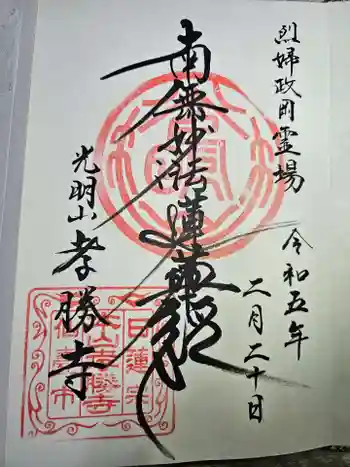 烈婦政岡霊場
令和五年
二月二十日
南無妙法蓮華経
光明山
孝勝寺
日蓮宗
本山孝勝寺
仙臺市